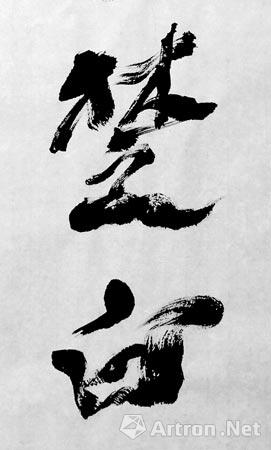 楚白
Artron.Net